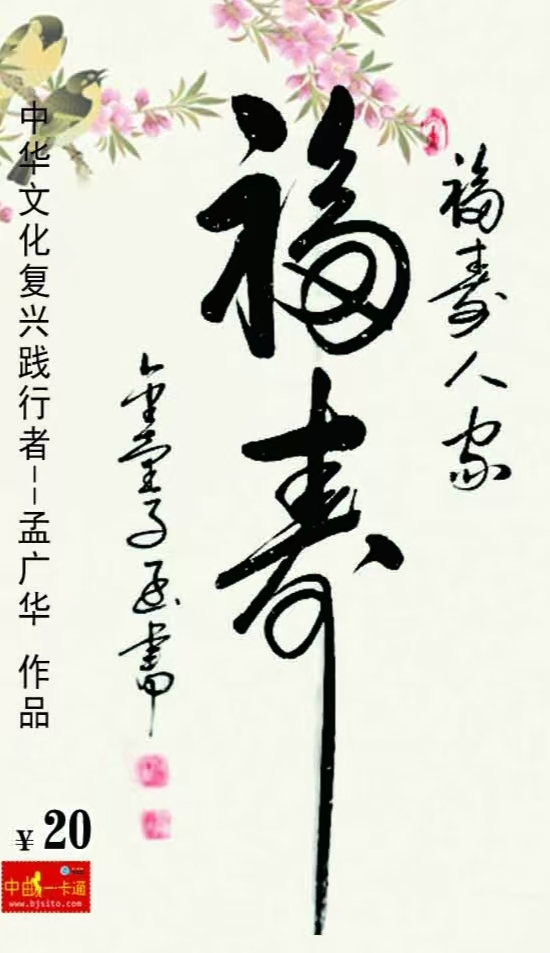 福寿人家
福寿
中华文化复兴践行者--孟广华 作品
¥20
中曲一卡通
www.bjsito.com